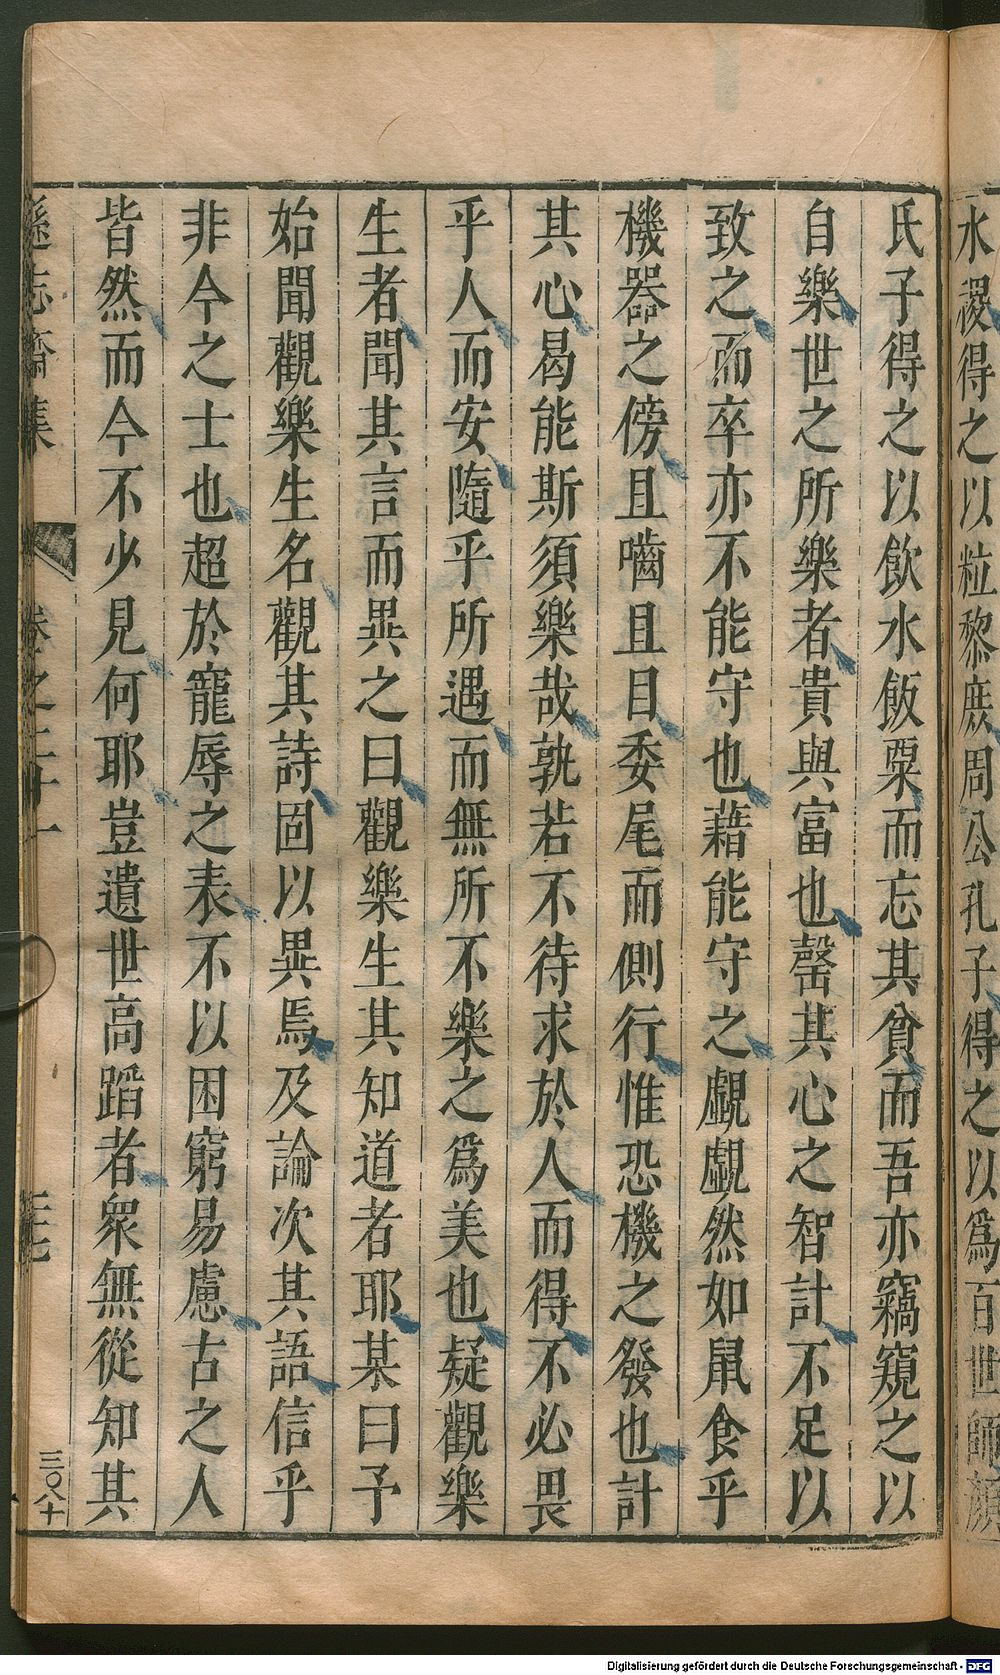 水稷得之以粒黎庶周公孔子得之以爲百世師顏
氏子得之以飲水飯粟而忘其貧而吾亦竊窺之以
自樂世之所樂者貴與富也罄其心之智計不足以
致之而卒亦不能守也藉能守之覷覷然如鼠食乎
機器之傍且嚙且目委尾而側行惟恐機之發也計
其心曷能斯須樂哉孰若不待求於人而得不必畏
乎人而安隨乎所遇而無所不樂之爲美也疑觀樂
生者聞其言而異之曰觀樂生其知道者耶某曰予
始聞觀樂生名觀其詩固以異焉及論次其語信乎
非今之士也超於寵辱之表不以困窮易慮古之人
皆然而今不少見何耶豈遺世高蹈者衆無從知其
遜志齋集 卷之二十一 三七 三〇八十
Digitalisierung gefördert durch die Deutsche Forschungsgemeinschaft - DFG